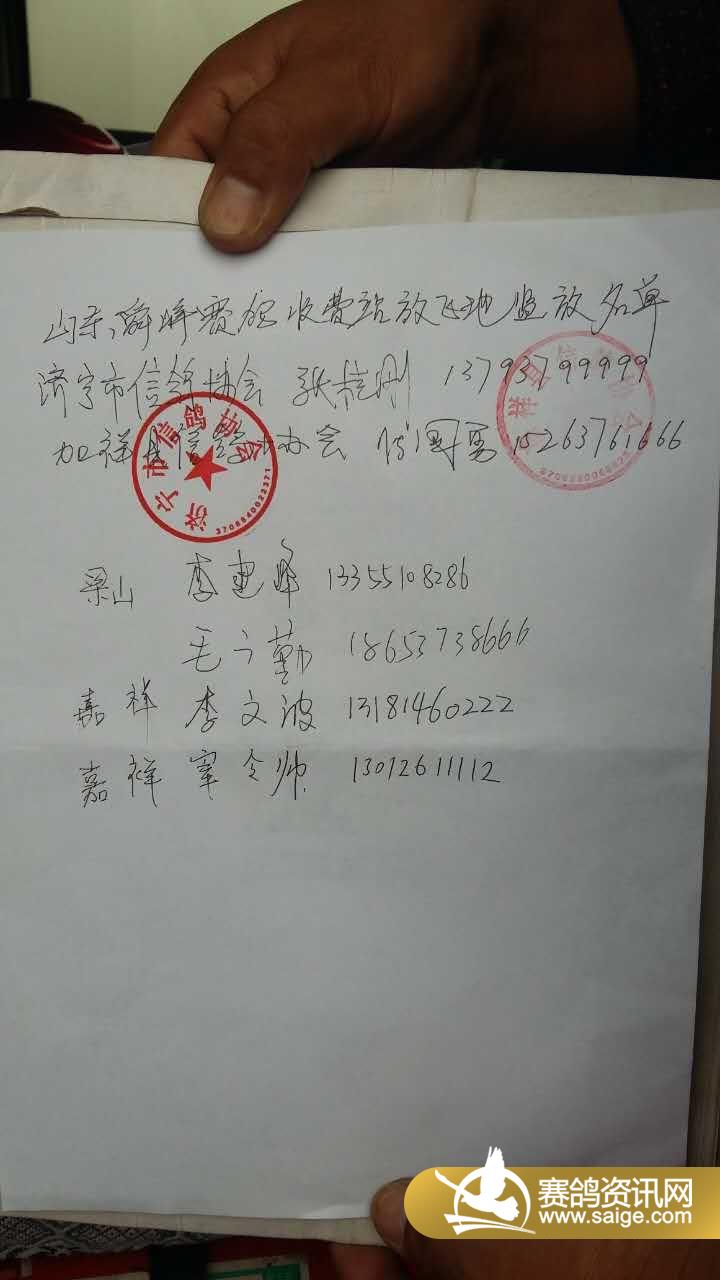 山东舜峰赛鸽收费站放飞地监放名单
济宁市信鸽协会 张 刚 13793799999
加祥县信鸽协会 国勇 15263761666
济宁市信鸽协会
3708840022371
祥县信 协会
梁山 李建峰 13355108286
毛 勤 18653738666
嘉祥 李文波 13181460222
嘉祥 军令帅 13012611112
赛鸽资讯网
www.saige.com